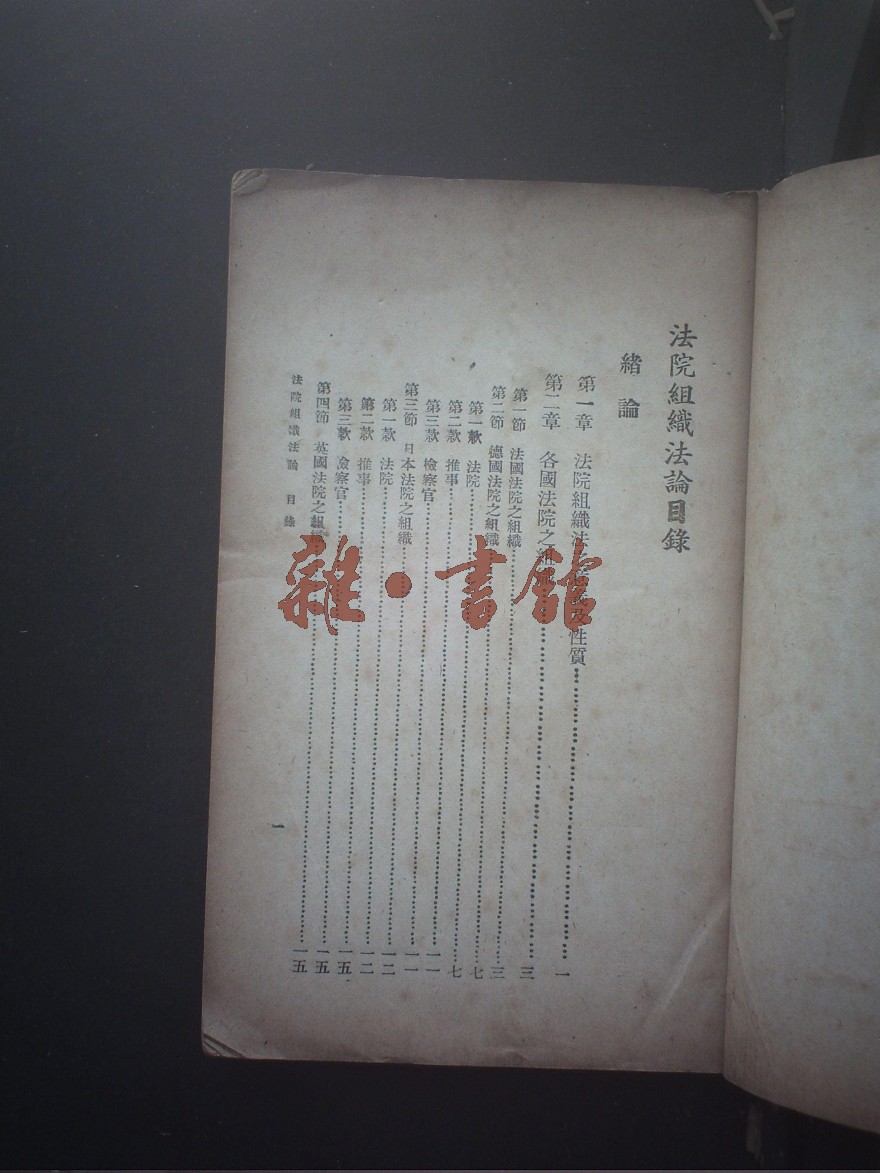 法院組織法論目錄
緒論
第一章 法院組織法之意義及性質……一
第二章 各國法院之組織……三
第一節 法國法院之組織……三
第二節 德國法院之組織……七
第一款 法院……七
第二款 推事……一一
第三款 檢察官……一一
第三節 日本法院之組織……一二
第一款 法院……一二
第二款 推事……一五
第三款 檢察官……一五
第四節 英國法院之組織……一五
法院組織法論 目錄
一
雜・書館